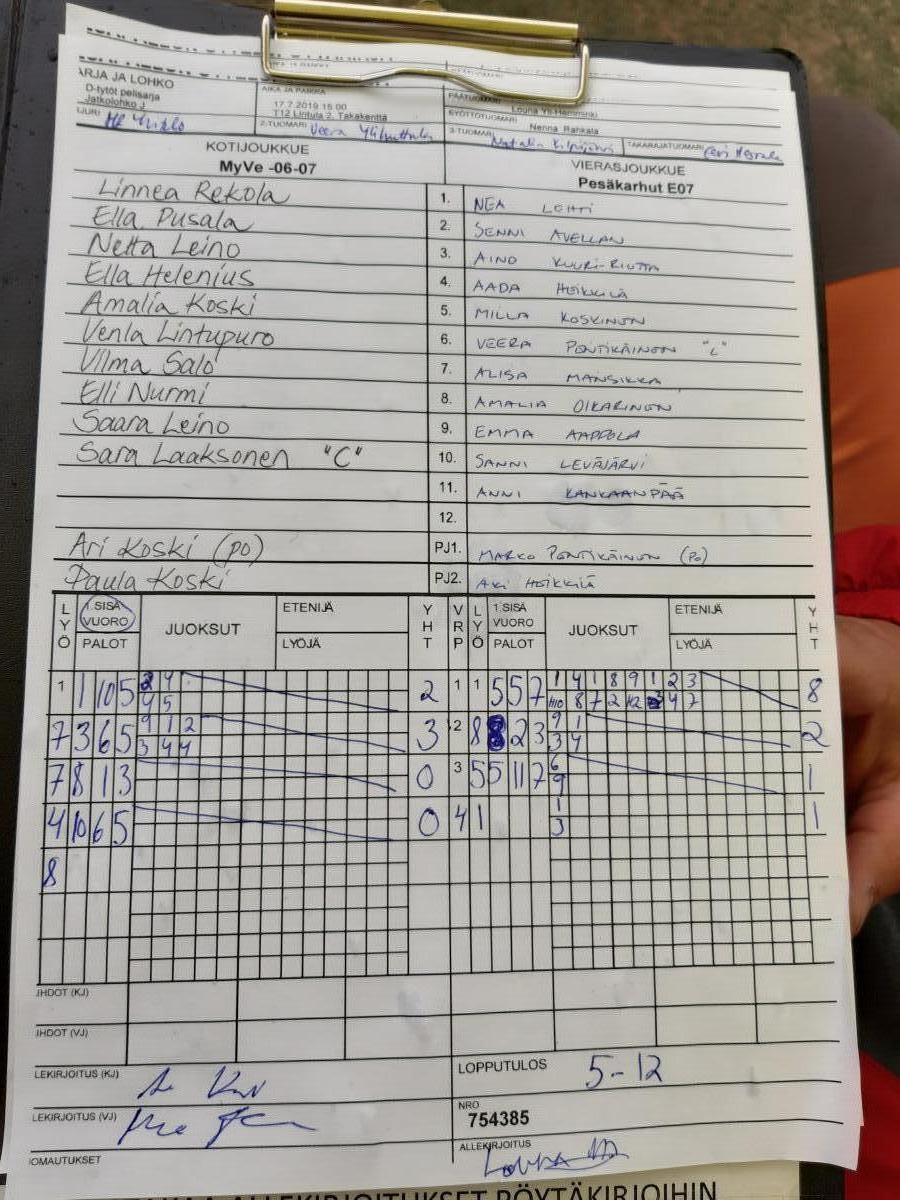 ARJA JA LOHKO
D-tytöt pelisarja
Jatkolohko J
AIKA JA PAIKKA
17.7.2019 15:00
T12 Lintula 2, Takakenttä
PÄÄTUOMARI
Louna Yli-Hemminki
SYÖTTÖTUOMARI
Nenna Rahkala
2-TUOMARI Veera
3-TUOMARI
TAKARAJATUOMARI
KOTIJOUKKUE
MyVe -06-07
VIERASJOUKKUE
Pesäkarhut E07
Linnea Rekola 1. NEA LEHTI
Ella Pusala 2. SENNI AVELLAN
Netta Leino 3. AINO KUURI-RIUTTA
Ella Helenius 4. AADA HEIKKILÄ
Amalia Koski 5. MILLA KOSKINEN
Venla Lintupuro 6. VEERA PONTIKÄINEN "C"
Vilma Salo 7. ALISA MANSIKKA
Elli Nurmi 8. AMALIA OIKARINEN
Saara Leino 9. EMMA AAPPOLA
Sara Laaksonen "C" 10. SANNI LEVÄJÄRVI
11. ANNI KANKAANPÄÄ
12.
Ari Koski (po) PJ1. MARKO PONTIKÄINEN (PO)
Paula Koski PJ2. AKI HEIKKILÄ
LYÖ 1.SISÄ VUORO PALOT JUOKSUT ETENIJÄ LYÖJÄ YHT VRP LYÖ 1.SISÄ VUORO PALOT JUOKSUT ETENIJÄ LYÖJÄ YHT
1 1 10 5 2 4 2 1 1 5 5 7 1 4 1 8 9 1 2 3 8
4 5 8 7 2 4 7
7 3 6 5 9 1 2 3 2 8 8 2 3 9 1 2
3 4 4 3 4
7 8 1 3 0 3 5 5 11 7 6 1
9
4 10 6 5 0 4 1 1 1
3
8
JHDOT (KJ)
JHDOT (VJ)
LEKIRJOITUS (KJ)
LOPPUTULOS 5-12
LEKIRJOITUS (VJ)
NRO
754385
ALLEKIRJOITUS
IOMAUTUKSET
ALLEKIRJOITUKSET PÖYTÄKIRJOIHIN